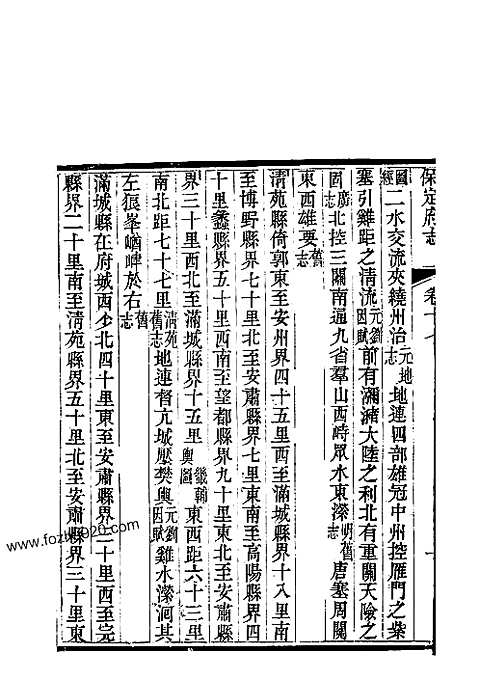 保定府志 卷十七
圖經二水交流夾繞州治元地志地連四部雄冠中州控雁門之紫
塞引雞距之清流元劉因賦前有瀰瀦大陸之利北有重關天險之
固廣志北控三關南逼九省羣山西峙眾水東瀠明舊志唐塞周關
東西雄要舊志
清苑縣倚郭東至安州界四十五里西至滿城縣界十八里南
至博野縣界七十里北至安肅縣界七里東南至高陽縣界四
十里蠡縣界五十里西南至望都縣界九十里東北至安肅縣
界三十里西北至滿城縣界十五里畿輔輿圖東西距六十三里
南北距七十七里清苑舊志地連督亢城壓樊輿元劉因賦雞水瀠洄其
左狼峯崷崪於右舊志
滿城縣在府城西少北四十里東至安肅縣界二十里西至完
縣界二十里南至清苑縣界五十里北至安肅縣界三十里東
www.fozhu920.com